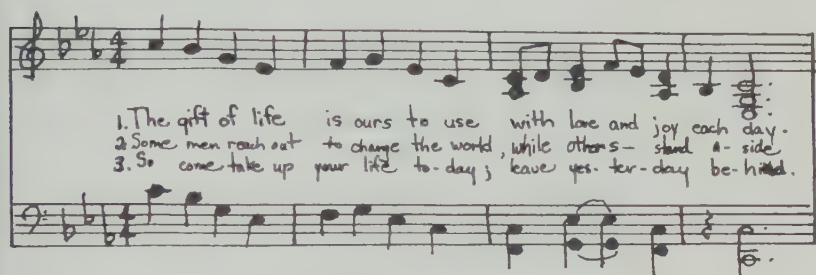 1. The gift of life is ours to use with love and joy each day.
2. Some men reach out to change the world, while others- stand a-side
3. So come take up your life to-day; leave yes-ter-day be-hind.